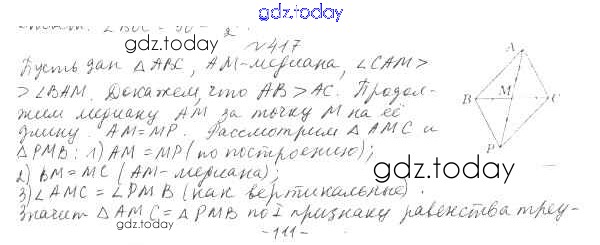 gdz.today
gdz.today
№417
Пусть дан △ABC, AM-медиана, ∠CAM>
>∠BAM. Докажем, что AB>AC. Продол-
жим медиану AM за точку M на её
длину. AM=MP. Рассмотрим △AMC и
△PMB: 1) AM=MP (по построению);
2) BM=MC (AM-медиана);
3) ∠AMC=∠PMB (как вертикальные).
Значит △AMC=△PMB по I признаку равенства треу-
-111-
A
B
M
C
P
gdz.today
gdz.today